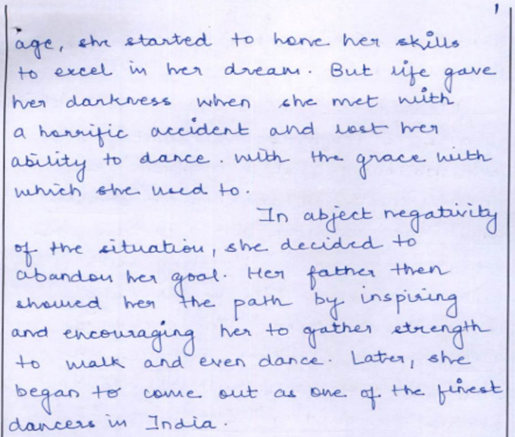 age, she started to hone her skills
to excel in her dream. But life gave
her darkness when she met with
a horrific accident and lost her
ability to dance. with the grace with
which she used to.
In abject negativity
of the situation, she decided to
abandon her goal. Her father then
showed her the path by inspiring
and encouraging her to gather strength
to walk and even dance. Later, she
began to come out as one of the finest
dancers in India.